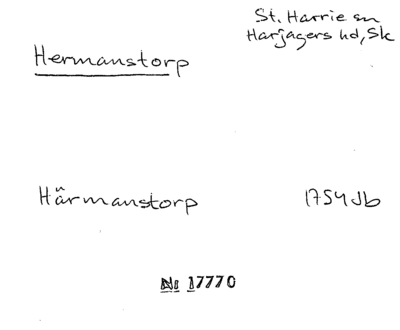 St. Harrie sn
Harjagers hd, Sk
Hermanstorp
Härmanstorp 1754 Jb
Nr 17770